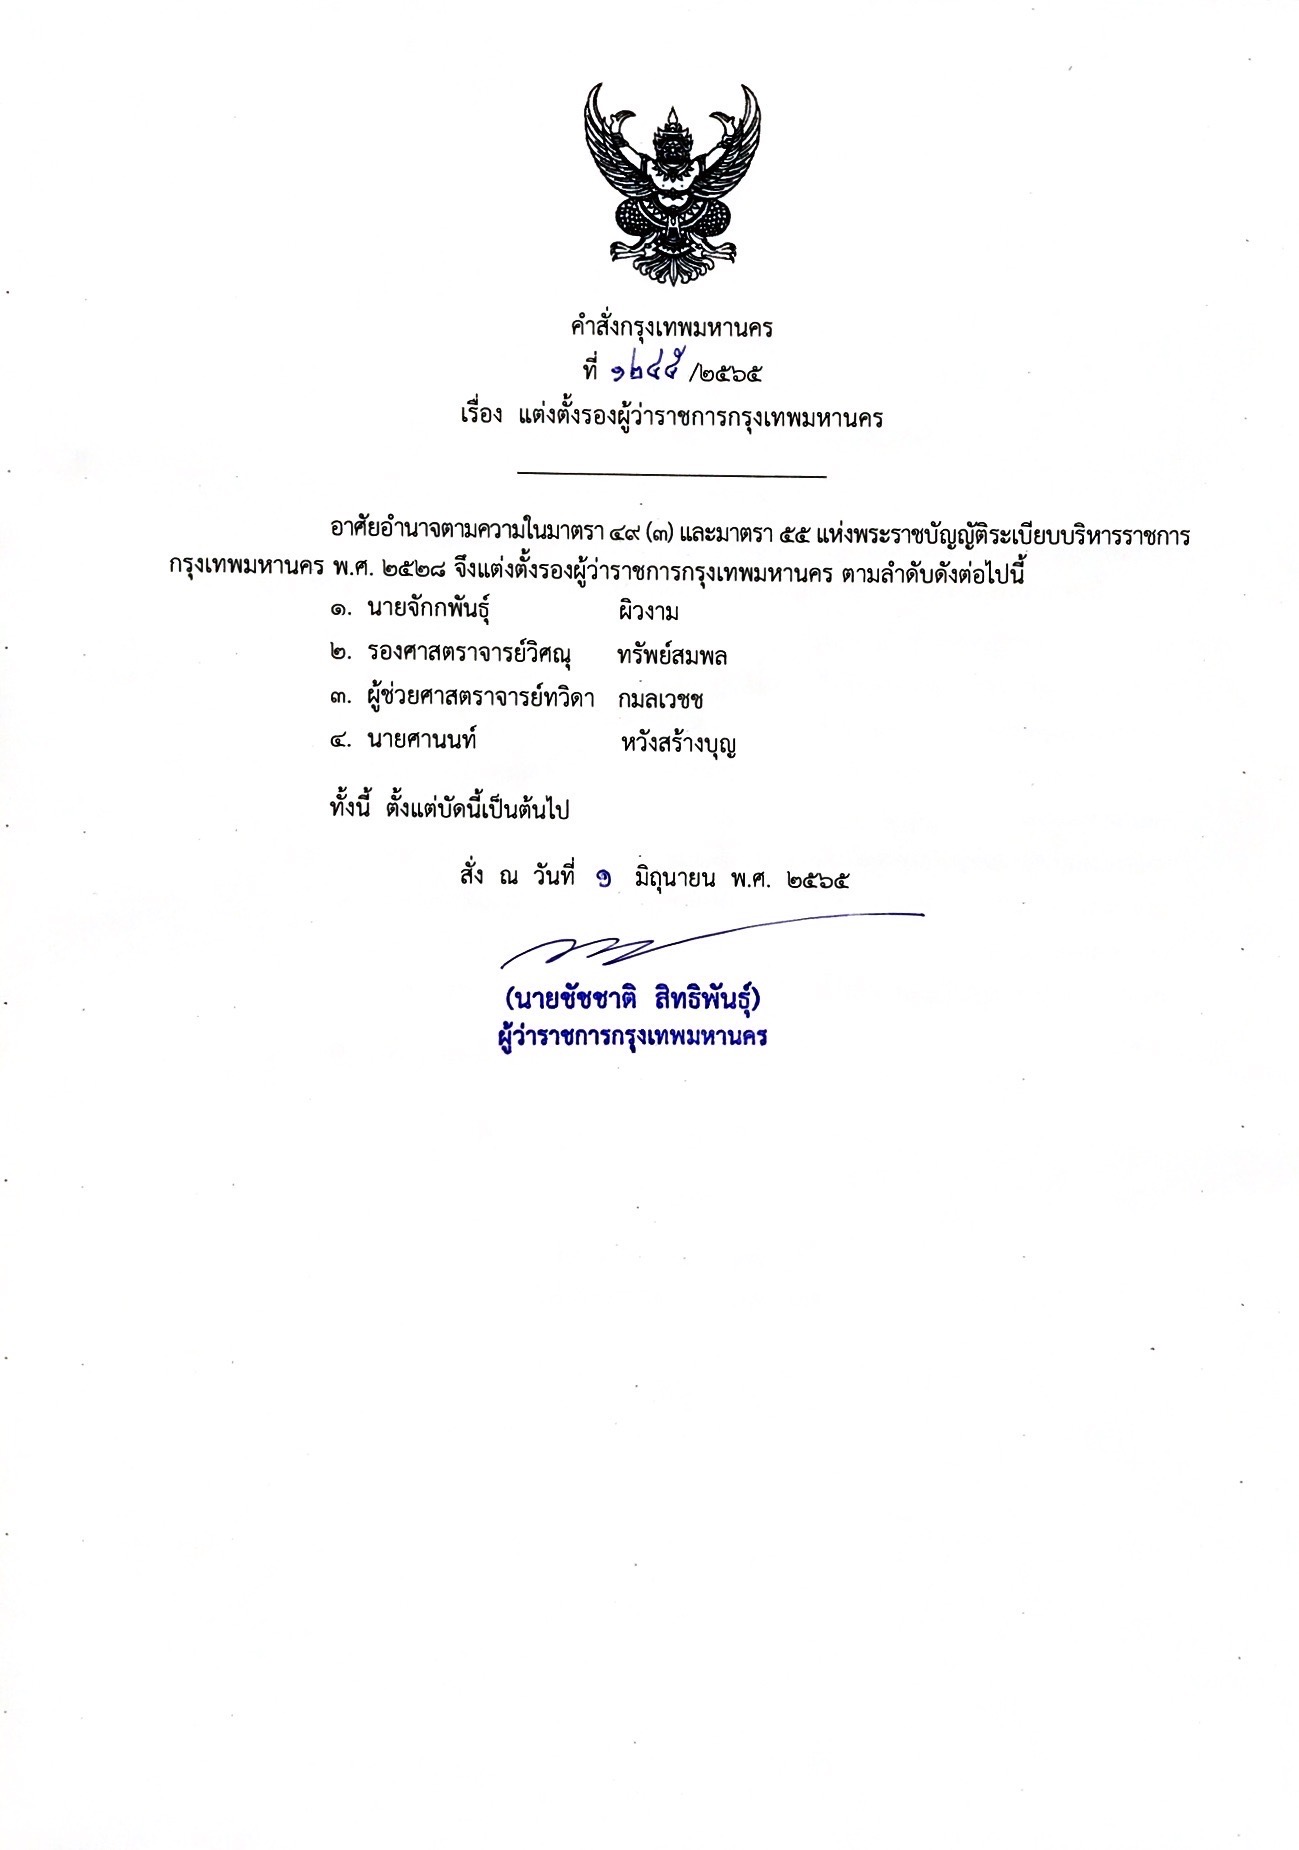 คำสั่งกรุงเทพมหานคร
ที่ ๑๒๔๕ /๒๕๖๕
เรื่อง แต่งตั้งรองผู้ว่าราชการกรุงเทพมหานคร
อาศัยอำนาจตามความในมาตรา ๔๙ (๓) และมาตรา ๕๕ แห่งพระราชบัญญัติระเบียบบริหารราชการ
กรุงเทพมหานคร พ.ศ. ๒๕๒๘ จึงแต่งตั้งรองผู้ว่าราชการกรุงเทพมหานคร ตามลำดับดังต่อไปนี้
๑. นายจักกพันธุ์ ผิวงาม
๒. รองศาสตราจารย์วิศณุ ทรัพย์สมพล
๓. ผู้ช่วยศาสตราจารย์ทวิดา กมลเวชช
๔. นายศานนท์ หวังสร้างบุญ
ทั้งนี้ ตั้งแต่บัดนี้เป็นต้นไป
สั่ง ณ วันที่ ๑ มิถุนายน พ.ศ. ๒๕๖๕
(นายชัชชาติ สิทธิพันธุ์)
ผู้ว่าราชการกรุงเทพมหานคร